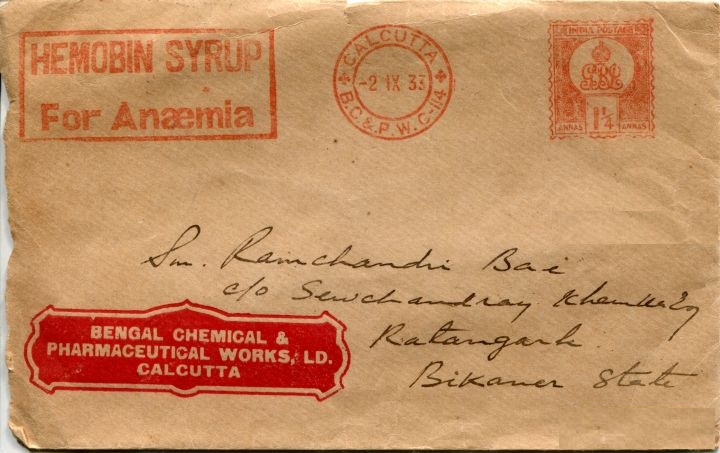 HEMOBIN SYRUP
For Anæmia
CALCUTTA
-2 IX 33
B.C.&P.W. C-114
INDIA POSTAGE
ANNAS 1¼ ANNAS
Sm. Ramchandri Bai
c/o Sewchandray
Ratangarh
Bikaner State
BENGAL CHEMICAL &
PHARMACEUTICAL WORKS, LD.
CALCUTTA